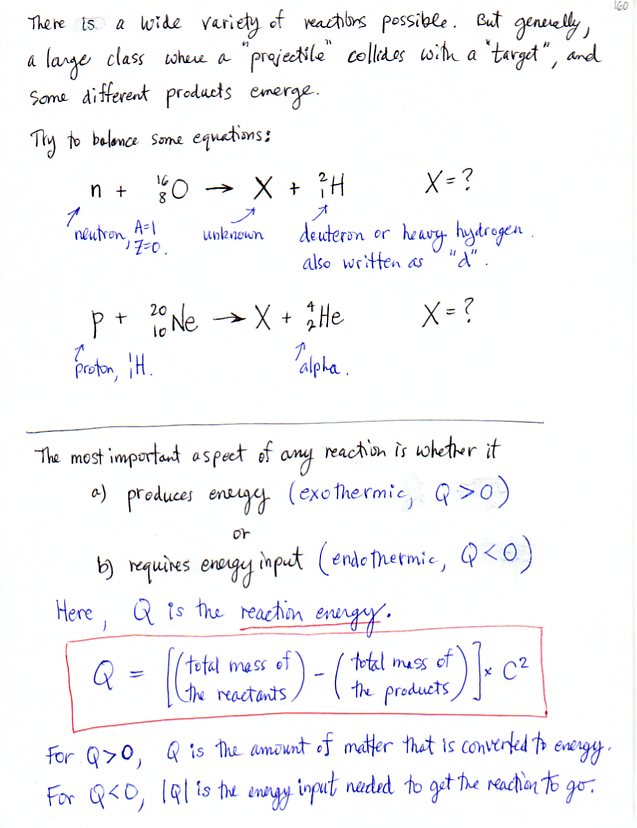 160
There is a wide variety of reactions possible. But generally,
a large class where a "projectile" collides with a "target", and
some different products emerge.
Try to balance some equations:
n + ¹⁶₈O → X + ²₁H X = ?
neutron, A=1, Z=0. unknown deuteron or heavy hydrogen.
also written as "d".
p + ²⁰₁₀Ne → X + ⁴₂He X = ?
proton, ¹₁H. alpha.
The most important aspect of any reaction is whether it
a) produces energy (exothermic, Q > 0)
or
b) requires energy input (endothermic, Q < 0)
Here, Q is the reaction energy.
Q = [(total mass of the reactants) - (total mass of the products)] × C²
For Q>0, Q is the amount of matter that is converted to energy.
For Q<0, |Q| is the energy input needed to get the reaction to go.